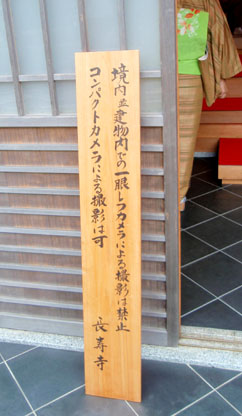 境内並建物内での一眼レフカメラによる撮影は禁止
コンパクトカメラによる撮影は可
長寿寺